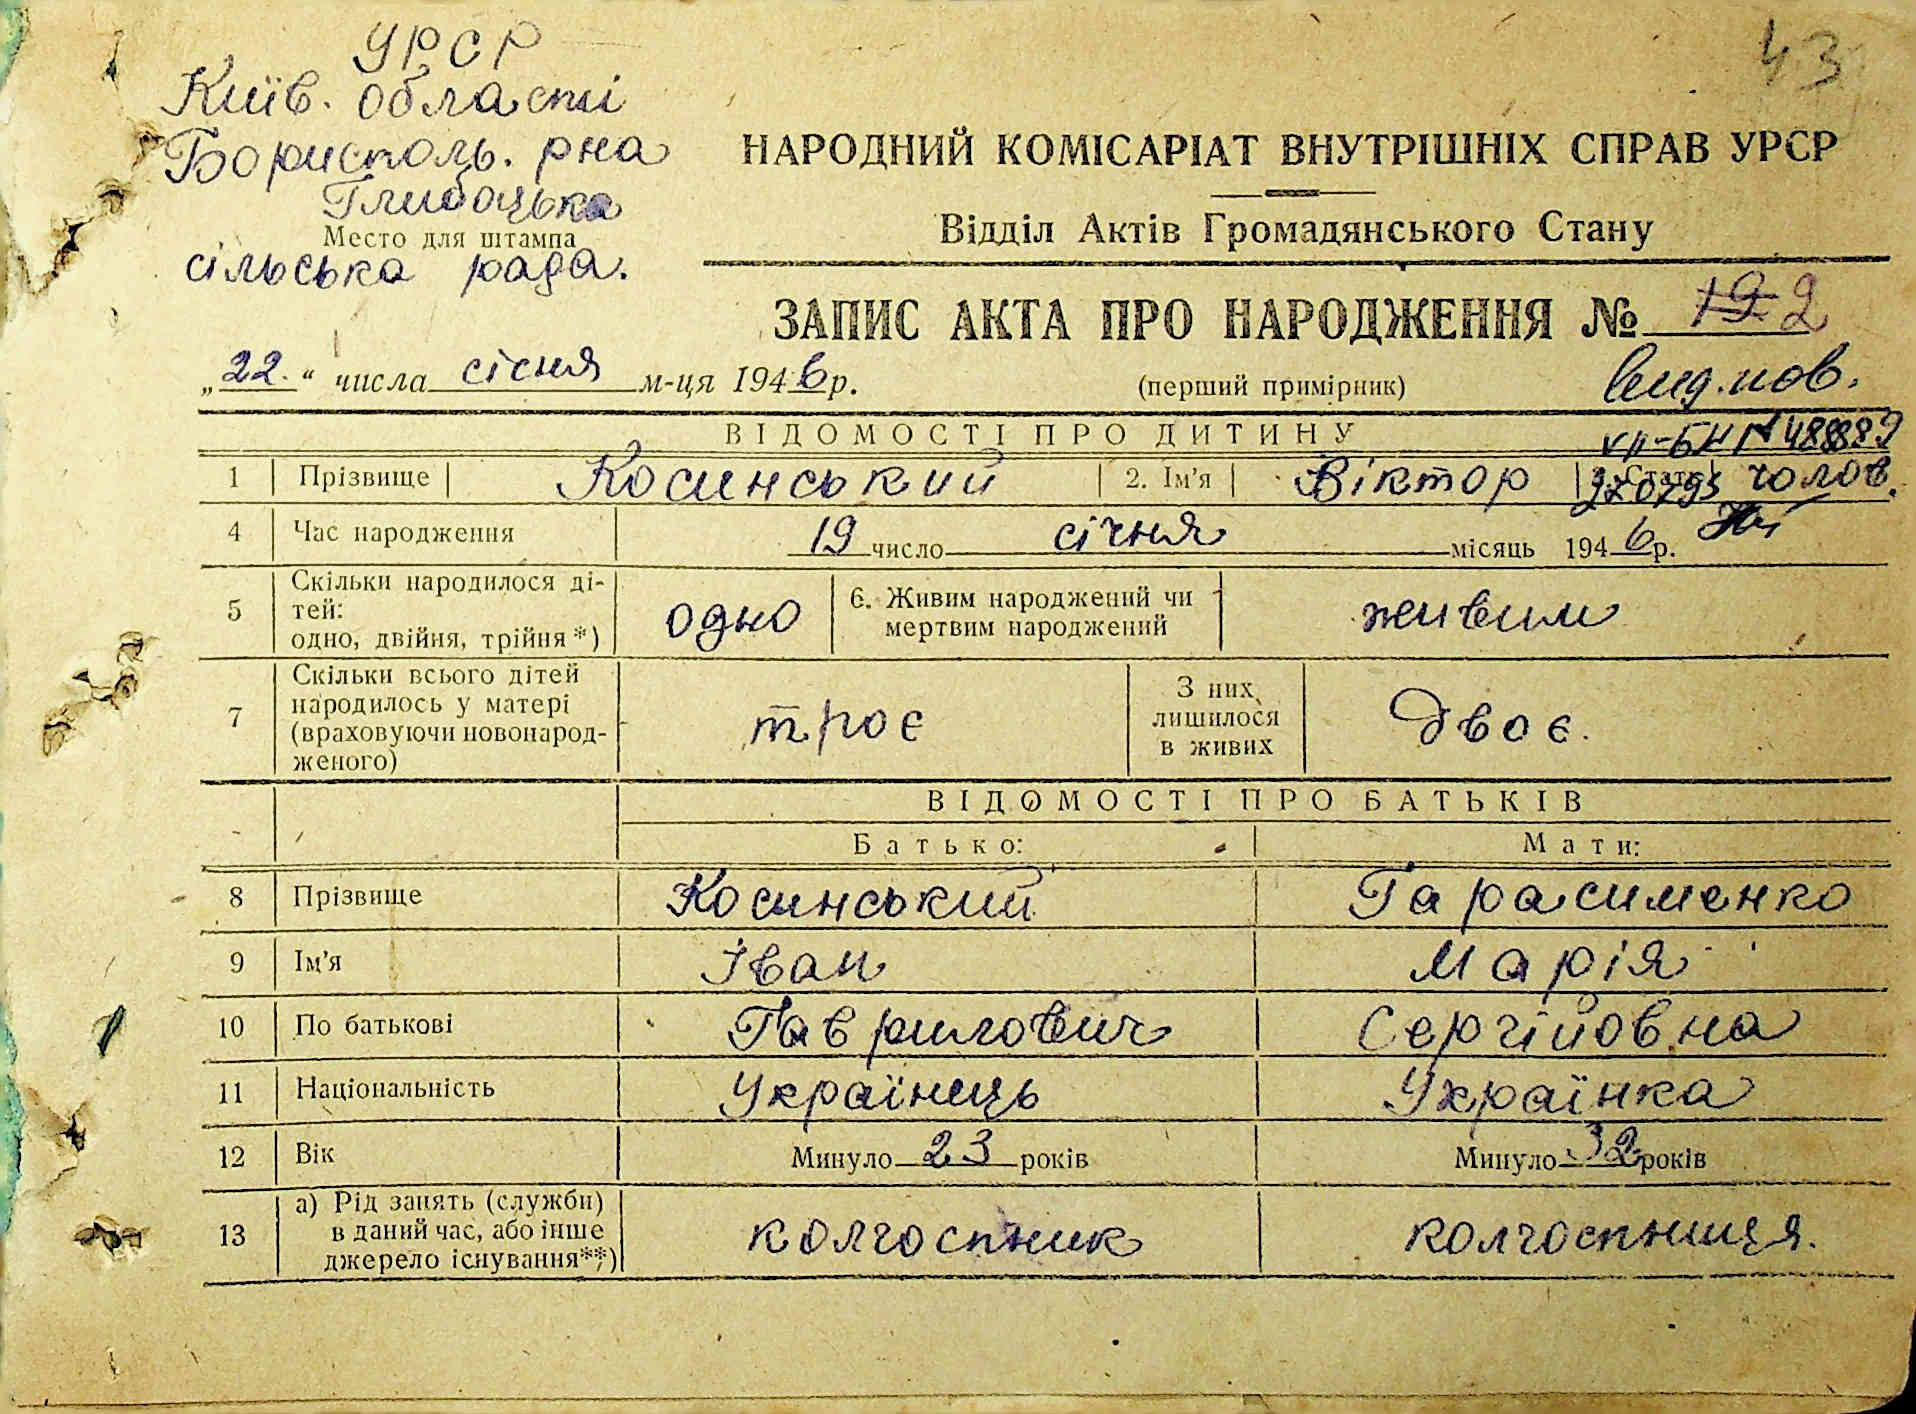 43
УРСР
Київ. області
Борисполь. рна
Глибоцька
Место для штампа
сільська рада.
НАРОДНИЙ КОМІСАРІАТ ВНУТРІШНІХ СПРАВ УРСР
Відділ Актів Громадянського Стану
ЗАПИС АКТА ПРО НАРОДЖЕННЯ № 19 2
„22." числа січня м-ця 1946 р. (перший примірник) вид. пов.
ВІДОМОСТІ ПРО ДИТИНУ
1 Прізвище Косинський 2. Ім'я Віктор 3. Стать чолов.
4 Час народження 19 число січня місяць 1946 р.
5 Скільки народилося ді-
тей:
одно, двійня, трійня*) одно 6. Живим народжений чи
мертвим народжений живим
7 Скільки всього дітей
народилось у матері
(враховуючи новонарод-
женого) троє З них
лишилося
в живих двоє.
ВІДОМОСТІ ПРО БАТЬКІВ
Батько: Мати:
8 Прізвище Косинський Гарасименко
9 Ім'я Іван Марія
10 По батькові Гаврилович Сергійовна
11 Національність Українець Українка
12 Вік Минуло 23 років Минуло 32 років
13 а) Рід занять (служби)
в даний час, або інше
джерело існування**) колгоспник колгоспниця.